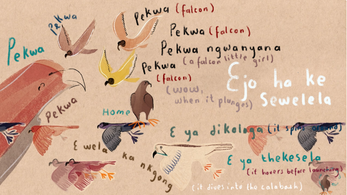 Pekwa
Pekwa
Pekwa
Pekwa
Pekwa (falcon)
Pekwa (falcon)
Pekwa ngwanyana
(a falcon little girl)
Pekwa
(falcon)
(wow,
when it plunges)
Ejo ha ke
Sewelela
Home
E ya dikologa (it spins
E wela ka nkgong
(it dives into the calabash)
E ya thekesela
(it hovers before launching)